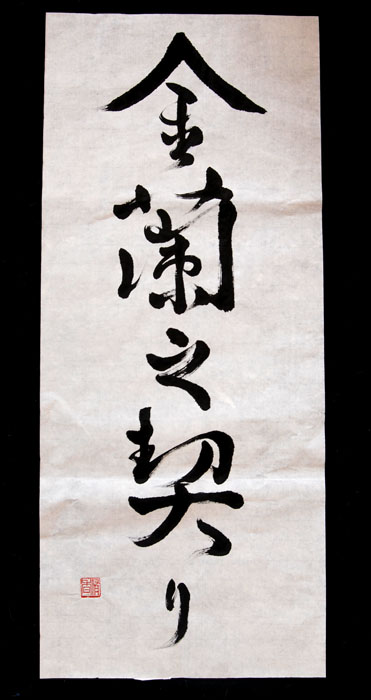 金蘭之契り